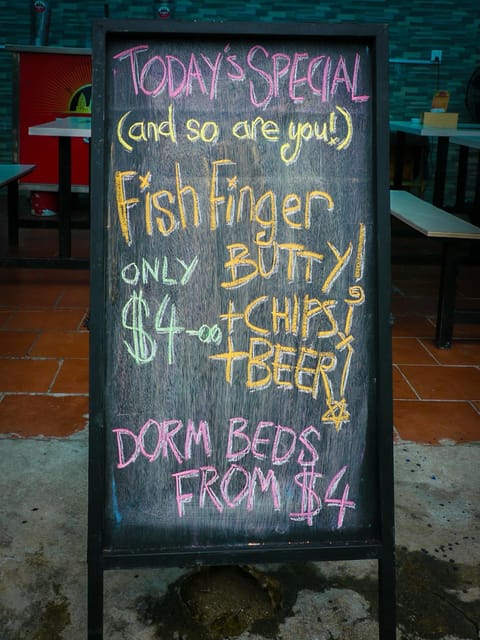 TODAY'S SPECIAL
(and so are you!)
Fish Finger
BUTTY!
ONLY
$4-00
+CHIPS!
+BEER!
DORM BEDS
FROM $4